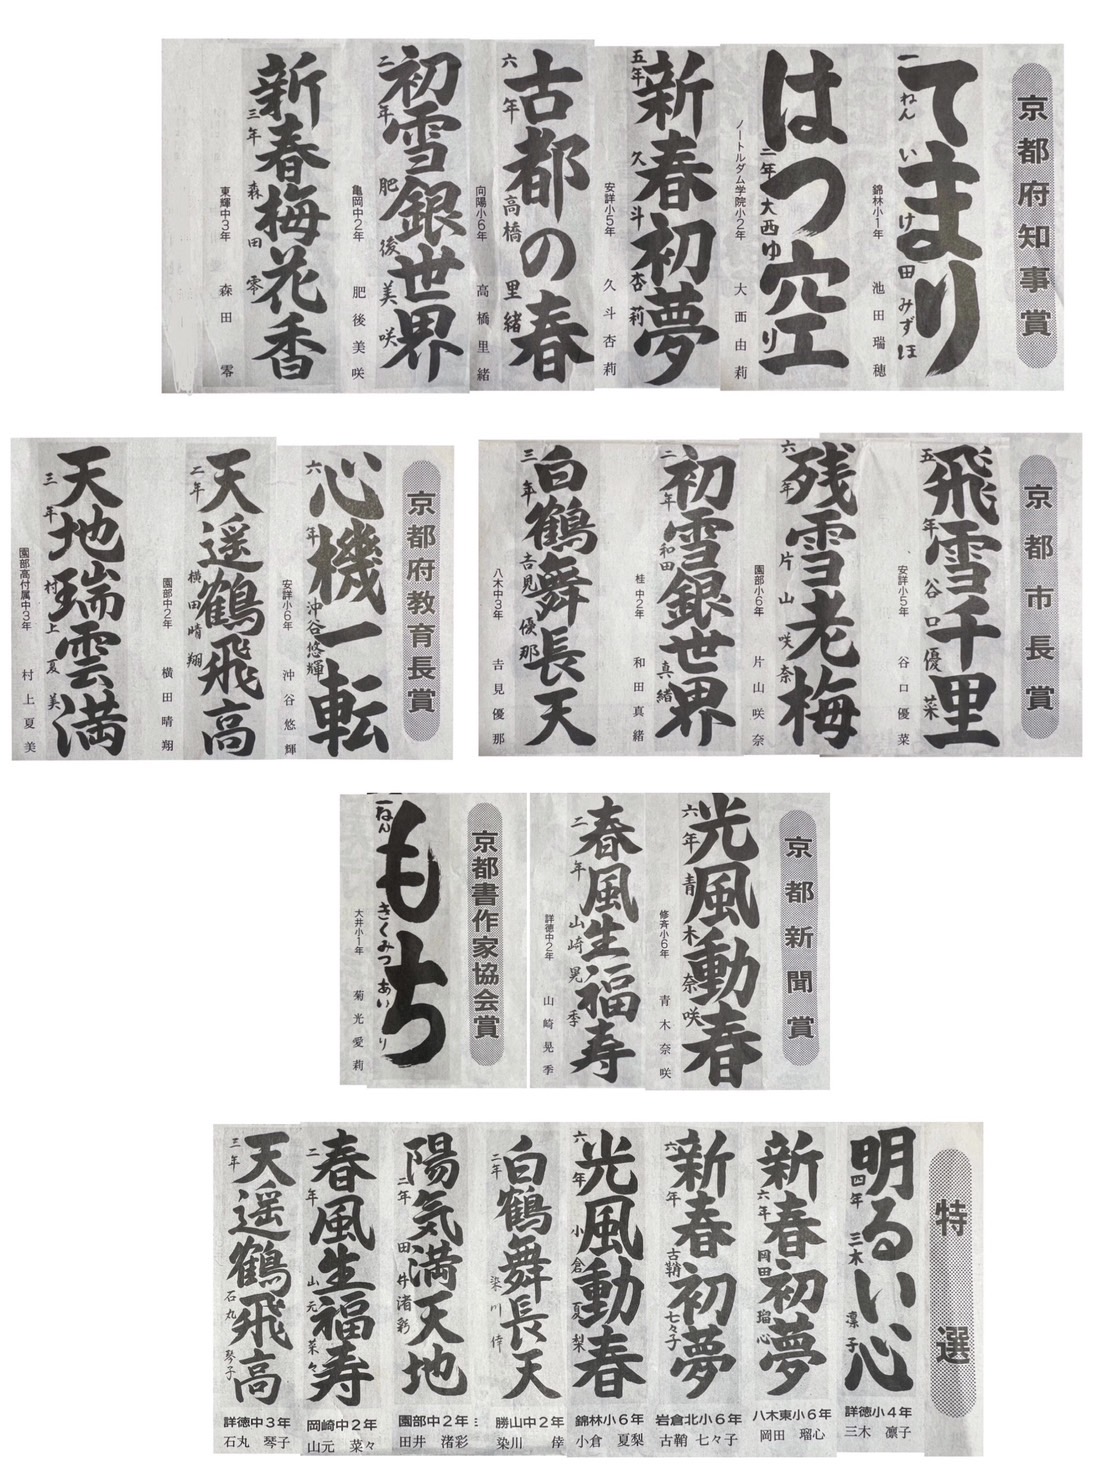 京都府知事賞
てまり
一ねん いけ田みずほ
錦林小1年 池田瑞穂
はつ空
二年 大西ゆり
ノートルダム学院小2年 大西由莉
新春初夢
五年 久斗杏莉
安詳小5年 久斗杏莉
古都の春
六年 高橋里緒
向陽小6年 高橋里緒
初雪銀世界
二年 肥後美咲
亀岡中2年 肥後美咲
新春梅花香
三年 森田零
東輝中3年 森田零
京都市長賞
飛雪千里
五年 谷口優菜
安詳小5年 谷口優菜
残雪老梅
六年 片山咲奈
園部小6年 片山咲奈
初雪銀世界
二年 和田真緒
桂中2年 和田真緒
白鶴舞長天
三年 吉見優那
八木中3年 吉見優那
京都府教育長賞
心機一転
六年 沖谷悠輝
安詳小6年 沖谷悠輝
天遥鶴飛高
二年 横田晴翔
園部中2年 横田晴翔
天地瑞雲満
三年 村上夏美
園部高付属中3年 村上夏美
京都新聞賞
光風動春
六年 青木奈咲
修斉小6年 青木奈咲
春風生福寿
二年 山崎晃季
詳徳中2年 山崎晃季
京都書作家協会賞
もち
一ねん きくみつあいり
大井小1年 菊光愛莉
特選
明るい心
四年 三木凛子
詳徳小4年
三木 凛子
新春初夢
六年 岡田瑠心
八木東小6年
岡田 瑠心
新春初夢
六年 古鞘七々子
岩倉北小6年
古鞘 七々子
光風動春
六年 小倉夏梨
錦林小6年
小倉 夏梨
白鶴舞長天
二年 染川倖
勝山中2年
染川 倖
陽気満天地
二年 田井渚彩
園部中2年
田井 渚彩
春風生福寿
二年 山元菜々
岡崎中2年
山元 菜々
天遥鶴飛高
三年 石丸琴子
詳徳中3年
石丸 琴子